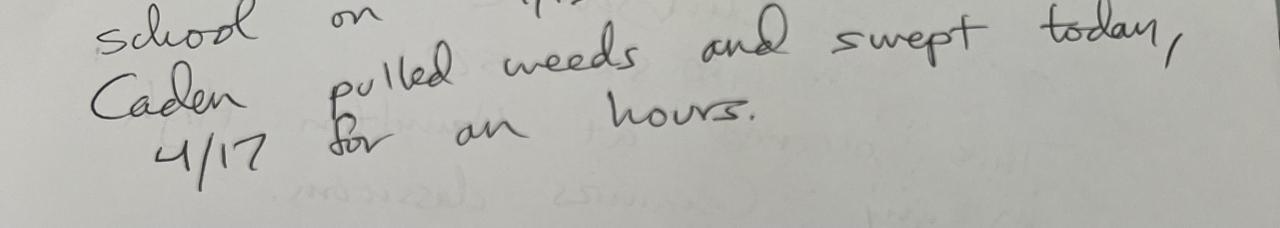 school on
Caden pulled weeds and swept today,
4/17 for an hours.